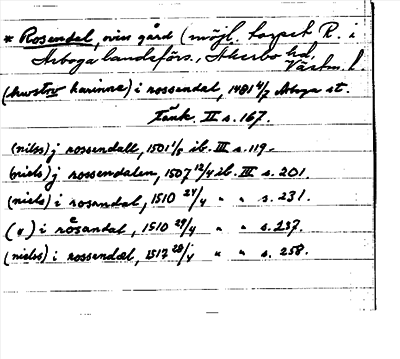 * Rosendal, oviss gård (möjl. torpet R. i
Arboga landsförs., Åkerbo hd,
Västm. l.
(hwstrv karinne) i rosendal, 1481 4/7 Arboga st.
Tänk. II s. 167.
(nilss) j rossendall, 1501 1/5 ib. III s. 119.
(niels) j rossendalen, 1507 12/4 ib. III s. 201.
(niels) i rosandal, 1510 24/4 " " s. 231.
(") i rosandal, 1510 29/4 " " s. 237.
(nielss) i rossendal, 1517 28/4 " " s. 258.